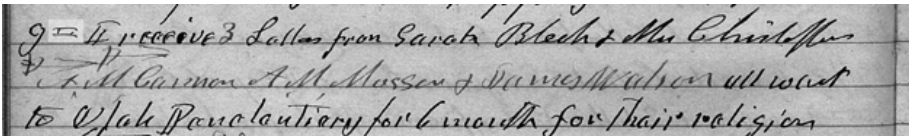 9 = I received 3 Lattes from Sarah Blech & Mrs Christoffers
A M Cannon A M Mosser & James Watson all want
to Utah Panalantiery for 6 month for Thair religion